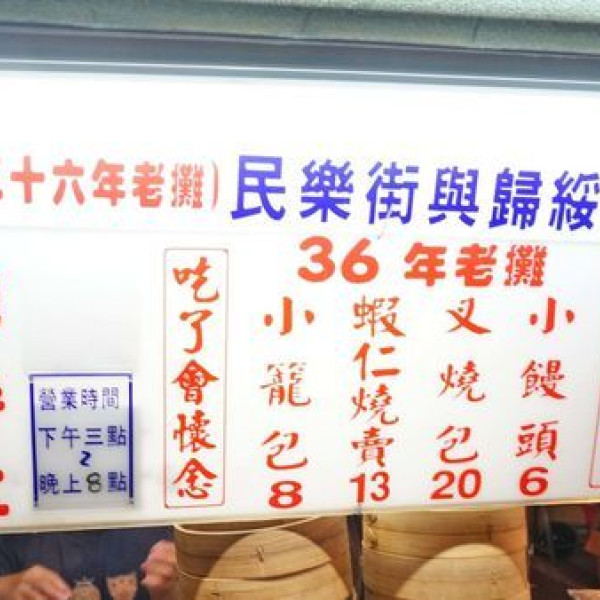 十六年老攤)
民樂街與歸綏
36年老攤
營業時間
下午三點
晚上8點
吃了會懷念
小籠包8
蝦仁燒賣13
叉燒包20
小饅頭6